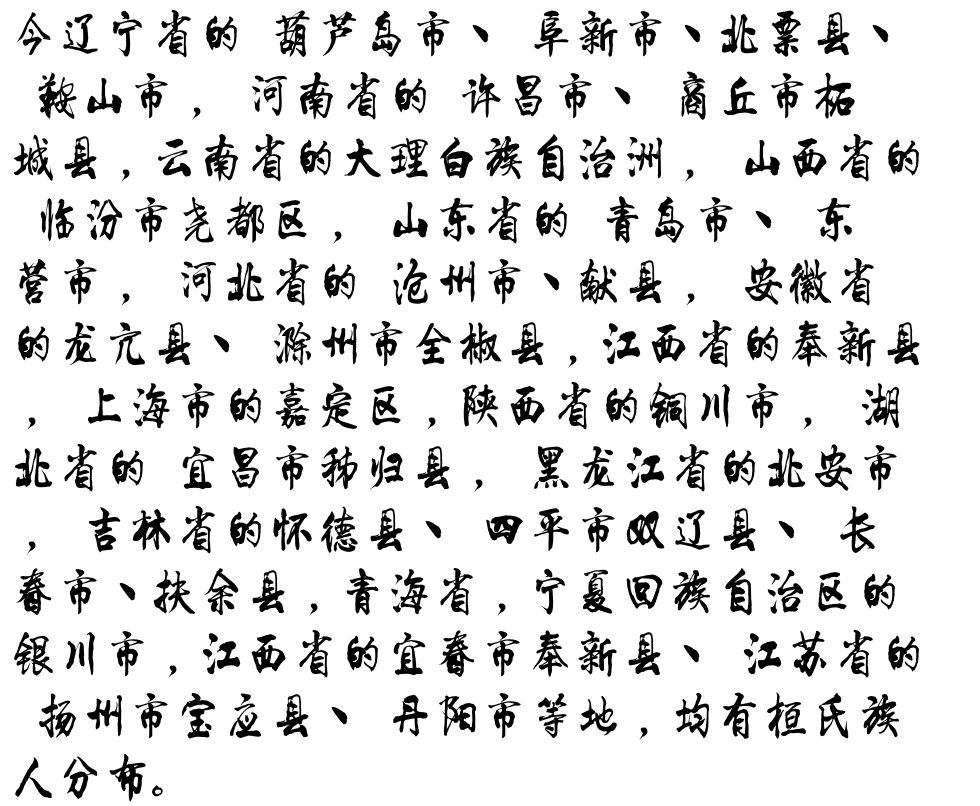 今辽宁省的 葫芦岛市、 阜新市、北票县、
鞍山市， 河南省的 许昌市、 商丘市柘
城县，云南省的大理白族自治洲， 山西省的
临汾市尧都区， 山东省的 青岛市、 东
营市， 河北省的 沧州市、献县， 安徽省
的龙亢县、 滁州市全椒县，江西省的奉新县
，上海市的嘉定区，陕西省的铜川市， 湖
北省的 宜昌市秭归县， 黑龙江省的北安市
， 吉林省的怀德县、 四平市双辽县、 长
春市、扶余县，青海省，宁夏回族自治区的
银川市，江西省的宜春市奉新县、 江苏省的
扬州市宝应县、 丹阳市等地，均有桓氏族
人分布。